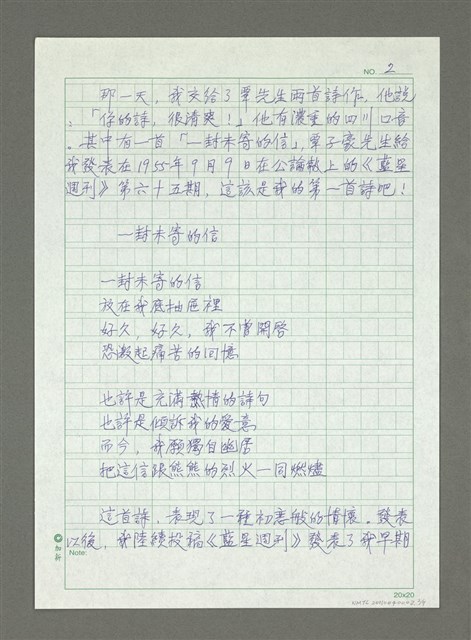 NO. 2
那一天，我交給了覃先生兩首詩作，他說
：「你的詩，很清爽！」他有濃重的四川口音
。其中有一首「一封未寄的信」，覃子豪先生給
我發表在1955年9月9日在公論報上的《藍星
週刊》第六十五期，這該是我的第一首詩吧！
一封未寄的信
一封未寄的信
放在我底抽屜裡
好久，好久，我不曾開啓
恐激起痛苦的回憶
也許是充滿熱情的詩句
也許是傾訴我的愛意
而今，我願獨自幽居
把這信跟熊熊的烈火一同燃燼
這首詩，表現了一種初戀般的情懷。發表
以後，我陸續投稿《藍星週刊》發表了我早期
Note:
20x20